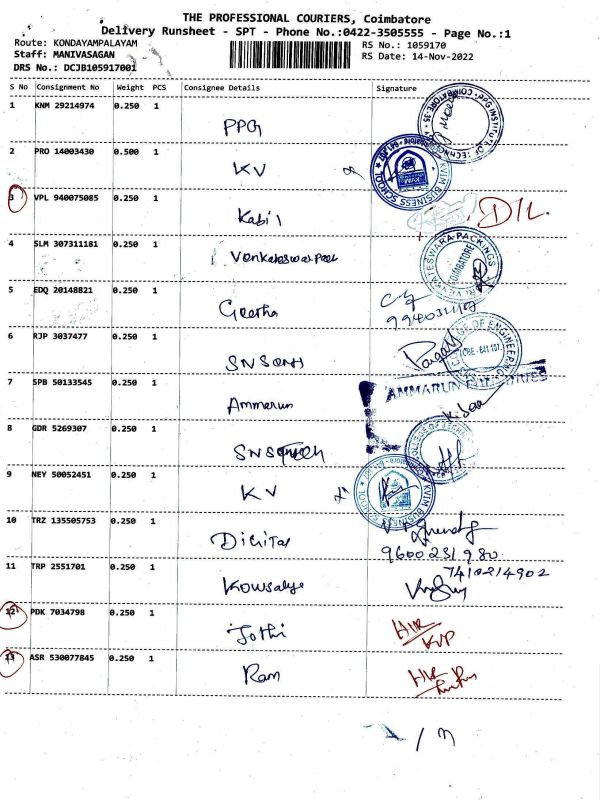 THE PROFESSIONAL COURIERS, Coimbatore
Delivery Runsheet - SPT - Phone No.:0422-3505555 - Page No.:1
Route: KONDAYAMPALAYAM
Staff: MANIVASAGAN
DRS No.: DCJB105917001
RS No.: 1059170
RS Date: 14-Nov-2022
S No Consignment No Weight PCS Consignee Details Signature
1 KNM 29214974 0.250 1 PPG
2 PRO 14003430 0.500 1 KV
KVIM BUSINESS SCHOOL
3 VPL 940075085 0.250 1 Kabil D/L.
4 SLM 307311181 0.250 1
5 EDQ 20148821 0.250 1 Geetha
6 RJP 3037477 0.250 1
COLLEGE OF ENGINEERING
CBE - 641 107
7 SPB 50133545 0.250 1 Ammarun
AMMARUN
8 GDR 5269307 0.250 1
9 NEY 50052451 0.250 1 KV
KVIM BUSINESS SCHOOL
10 TRZ 135505753 0.250 1 Digital
9600231980
11 TRP 2551701 0.250 1 Kowsalya
7410214902
12 PDK 7034798 0.250 1 Jothi
13 ASR 530077845 0.250 1 Ram